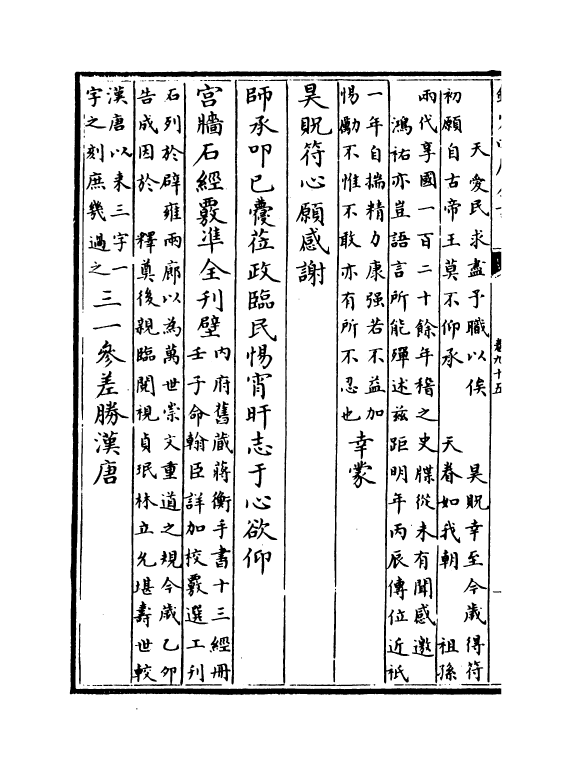 卷九十五
天愛民求盡予職以俟　昊貺幸至今歲得符
初願自古帝王莫不仰承　天眷如我朝　祖孫
兩代享國一百二十餘年稽之史牒從未有聞感邀
鴻祐亦豈語言所能殫述茲距明年丙辰傳位近祗
一年自揣精力康强若不益加
惕勵不惟不敢亦有所不忍也
幸蒙
昊貺符心願感謝
師承叩已蘉莅政臨民惕宵旰志于心欲仰
宮牆石經覈準全刊壁
內府舊藏蔣衡手書十三經冊
壬子命翰臣詳加校覈選工刊
石列於辟雍兩廊以為萬世崇文重道之規今歲乙卯
告成因於　釋奠後親臨閱視貞珉林立允堪壽世較
漢唐以来三字一
字之刻庶幾過之
三一參差勝漢唐